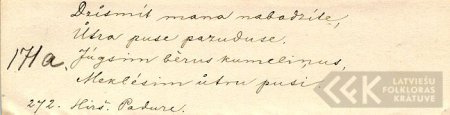 Drīsmit mana nabadzīte,
Ūtra puse pazuduse.
171a.
Jūgsim bērus kumeliņus,
Meklēsim ūtru pusi.
272. Hirš. Padure.
LATVIEŠU
FOLKLORAS
KRĀTUVE